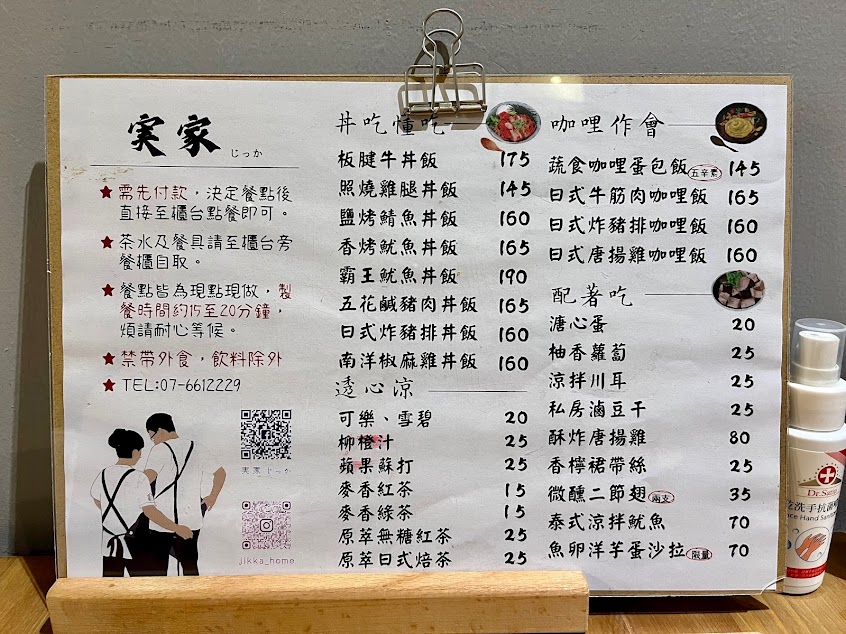 実家
じっか
★需先付款，決定餐點後
直接至櫃台點餐即可。
★茶水及餐具請至櫃台旁
餐櫃自取。
★餐點皆為現點現做，製
餐時間約15至20分鐘，
煩請耐心等候。
★禁帶外食，飲料除外
★TEL:07-6612229
実家じっか
jikka_home
丼吃懂吃
板腱牛丼飯 175
照燒雞腿丼飯 145
鹽烤鯖魚丼飯 160
香烤魷魚丼飯 165
霸王魷魚丼飯 190
五花鹹豬肉丼飯 165
日式炸豬排丼飯 160
南洋椒麻雞丼飯 160
透心涼
可樂、雪碧 20
柳橙汁 25
蘋果蘇打 25
麥香紅茶 15
麥香綠茶 15
原萃無糖紅茶 25
原萃日式焙茶 25
咖哩作會
蔬食咖哩蛋包飯 五辛素 145
日式牛筋肉咖哩飯 165
日式炸豬排咖哩飯 160
日式唐揚雞咖哩飯 160
配著吃
溏心蛋 20
柚香蘿蔔 25
涼拌川耳 25
私房滷豆干 25
酥炸唐揚雞 80
香檸裙帶絲 25
微醺二節翅 兩支 35
泰式涼拌魷魚 70
魚卵洋芋蛋沙拉 限量 70